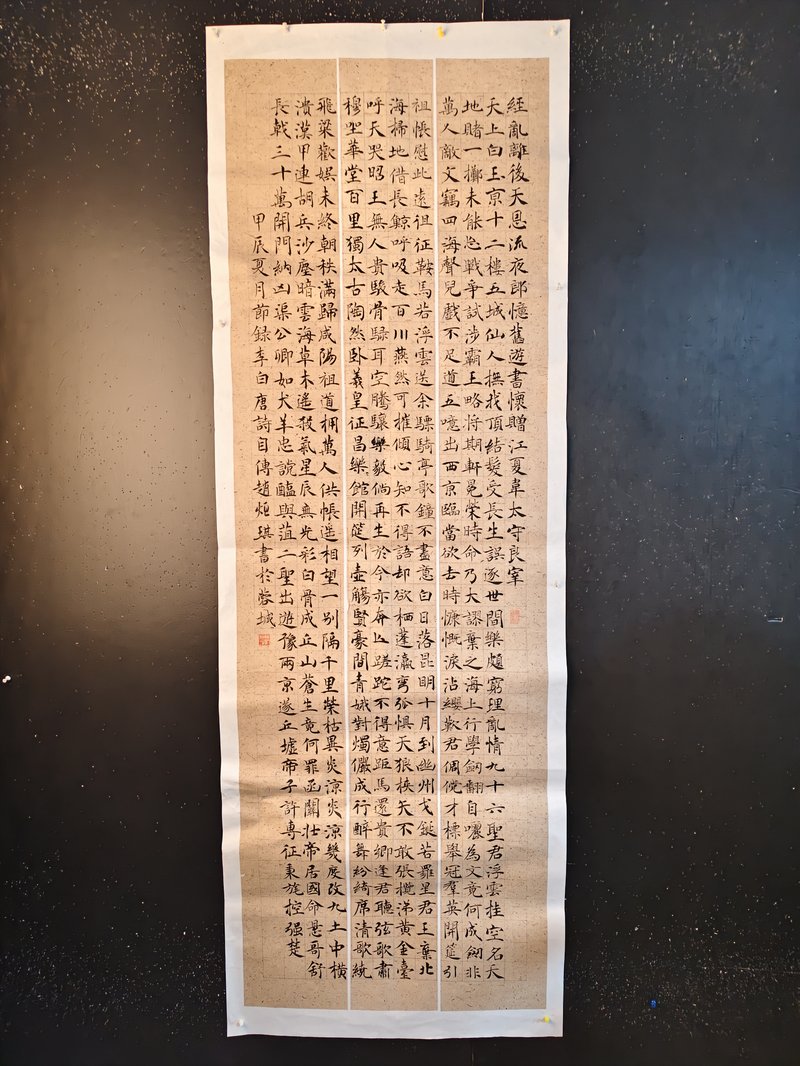 經亂離後天恩流夜郎憶舊遊書懷贈江夏韋太守良宰
天上白玉京十二樓五城仙人撫我頂結髮受長生誤逐世間樂頗窮理亂情九十六聖君浮雲挂空名天
地賭一擲未能忘戰爭試涉霸王略將期軒冕榮時命乃大謬棄之海上行學劍翻自嚷為文竟何成劍非
萬人敵文竊四海聲兒戲不足道五噫出西京臨當欲去時慷慨淚沾纓歎君倜儻才標舉冠羣英開筵引
祖帳慰此遠徂征鞍馬若浮雲送余驃騎亭歌鐘不盡意白日落昆明十月到幽州戈鋋若羅星君王棄北
海掃地借長鯨呼吸走百川燕然可摧傾心知不得語却欲栖蓬瀛彎弧懼天狼挾矢不敢張攬涕黃金臺
呼天哭昭王無人貴駿骨騄耳空騰驤樂毅倘再生於今亦奔亡蹉跎不得意距馬還貴鄉逢君聽弦歌肅
穆坐華堂百里獨太古陶然卧羲皇征昌樂館開筵列壺觴賢豪間青娥對燭儼成行醉舞紛綺席清歌繞
飛梁歡娛未終朝秩滿歸咸陽祖道拥萬人供帳遙相望一別隔千里榮枯異炎涼炎涼幾度改九土中橫
潰漢甲連胡兵沙塵暗雲海草木遙殺氣星辰無光彩白骨成丘山蒼生竟何罪函關壯帝居國命懸哥舒
長戟三十萬開門納凶渠公卿如犬羊忠讜醢與菹二聖出遊豫兩京遂丘墟帝子許專征秉旄控强楚
甲辰夏月節錄李白唐詩自傳趙炬琪書於蓉城